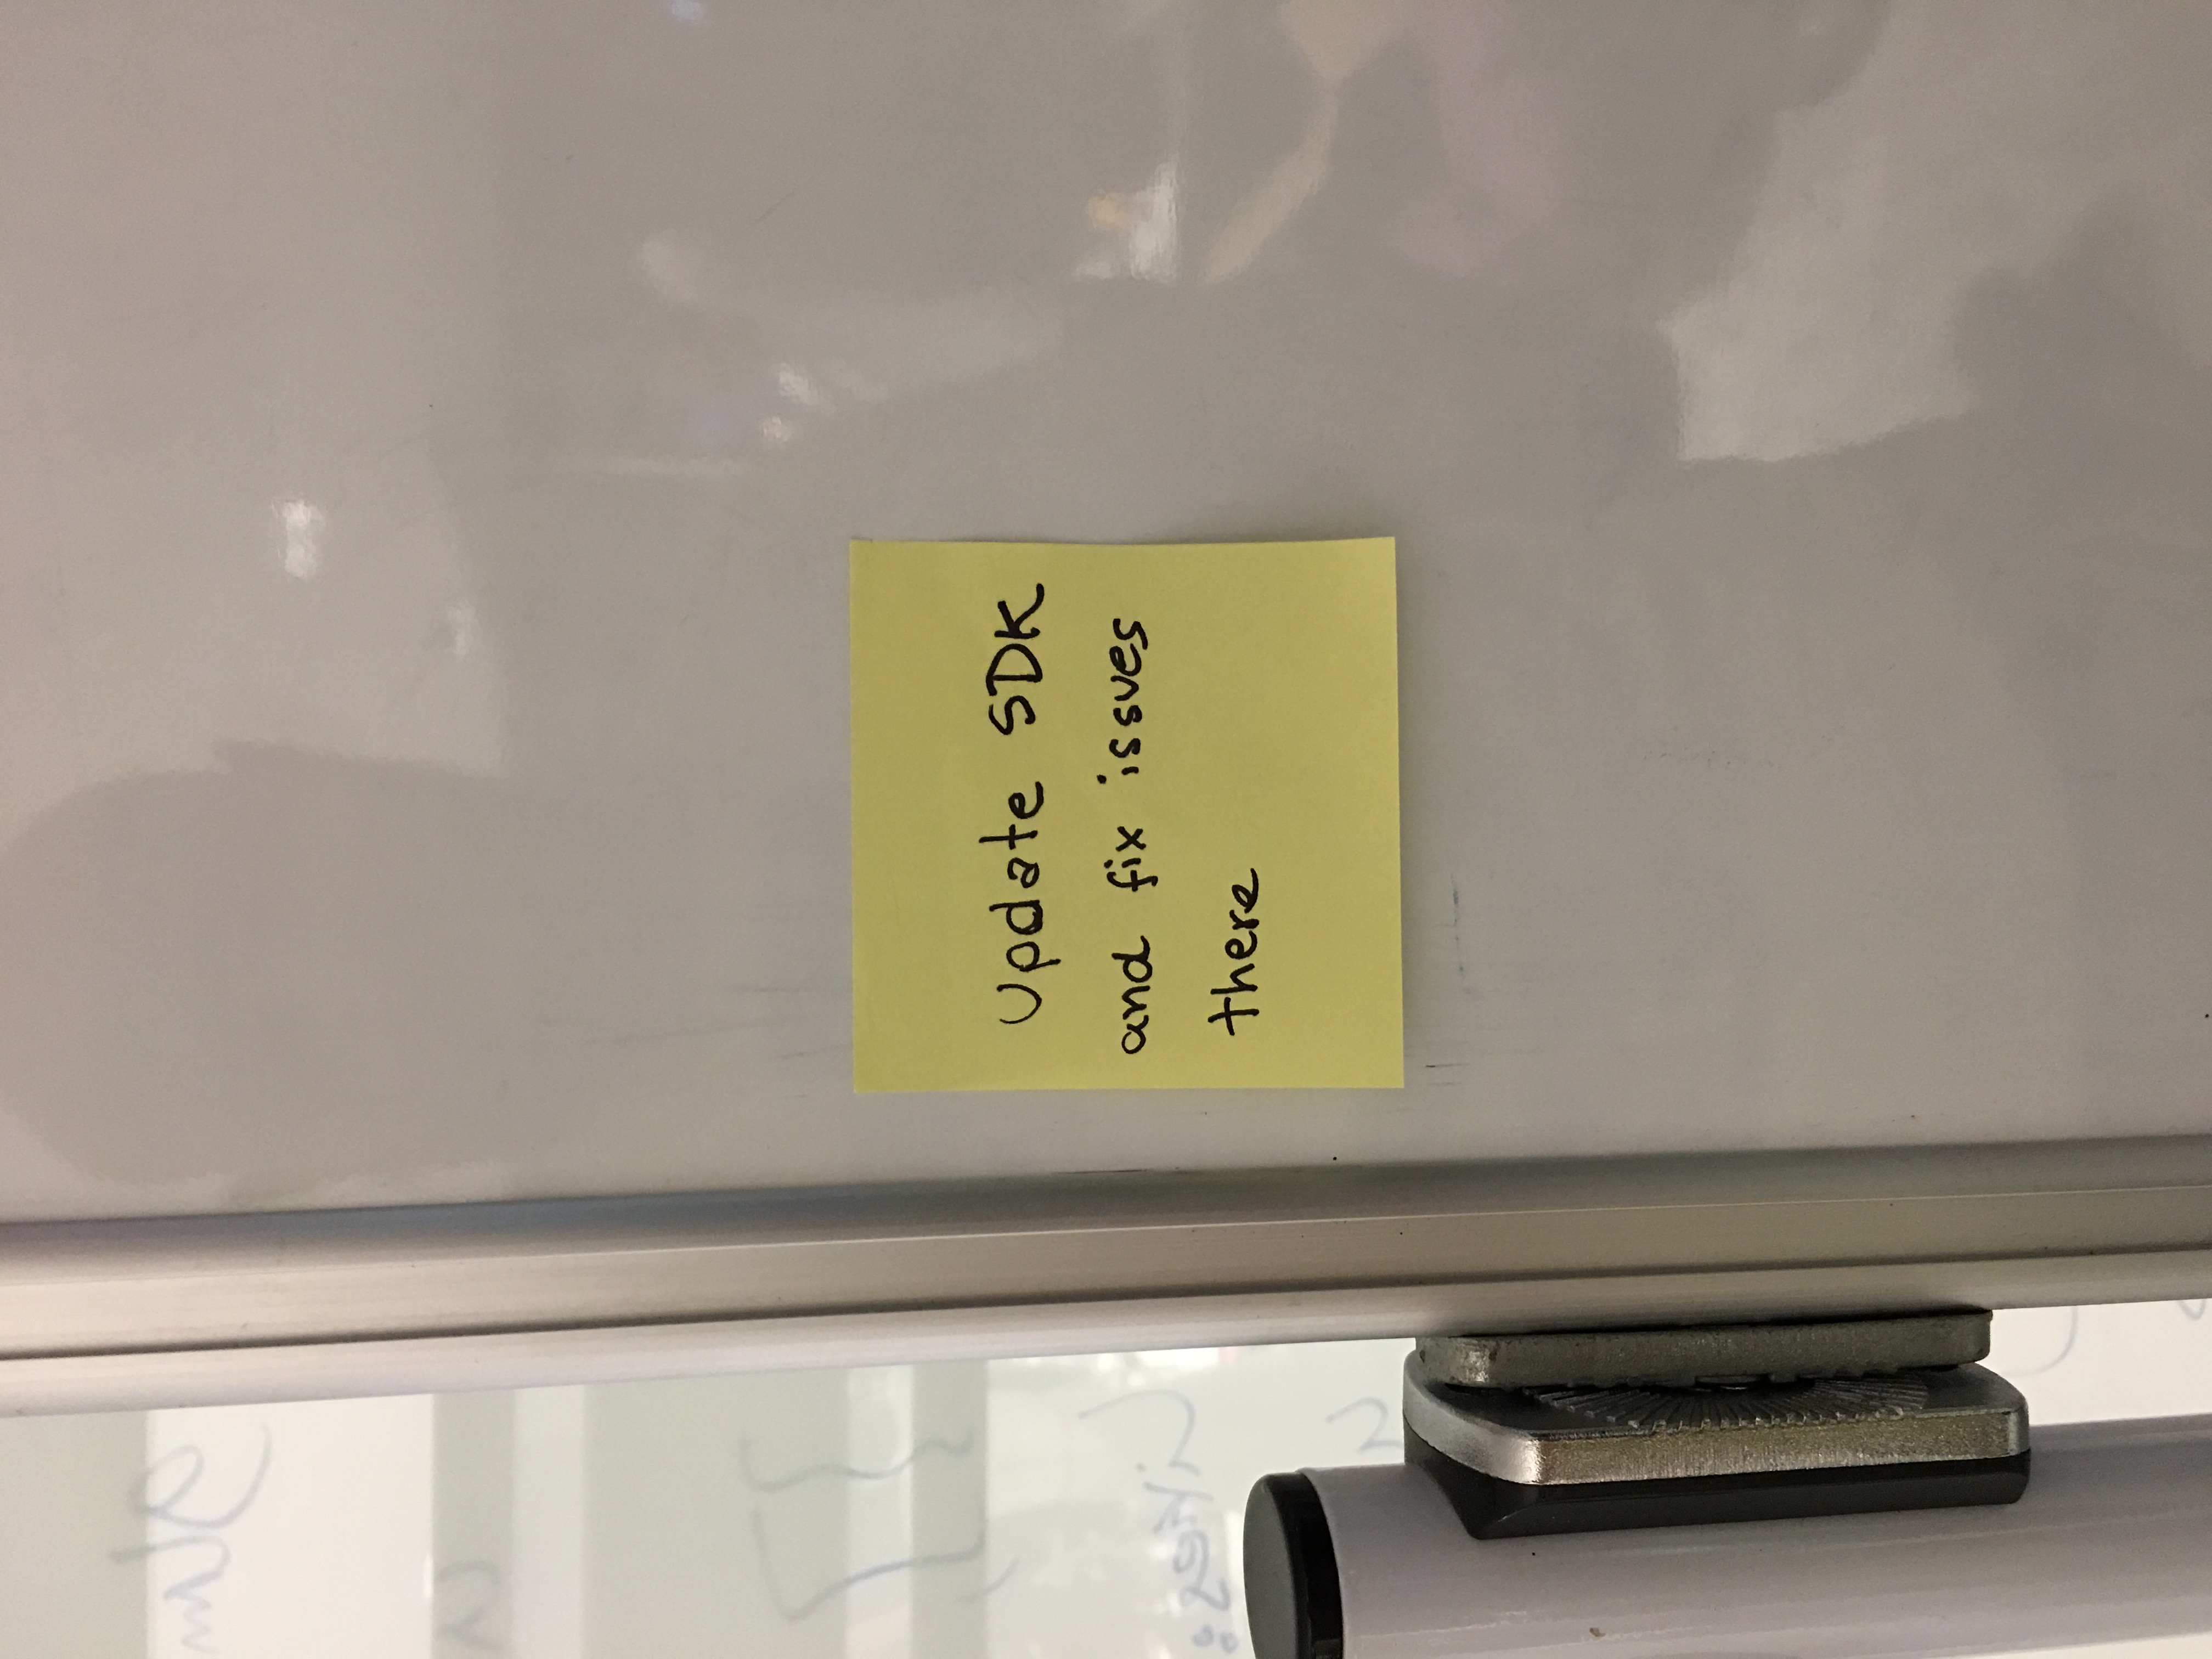 Update SDK
and fix issues
there